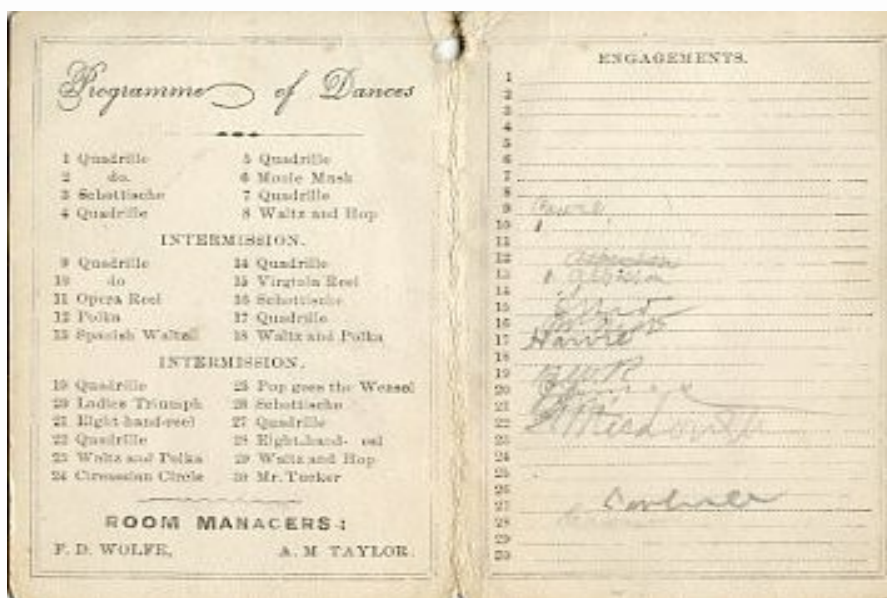 Programme of Dances
1 Quadrille
2 do.
3 Schottische
4 Quadrille
5 Quadrille
6 Monie Musk
7 Quadrille
8 Waltz and Hop
INTERMISSION.
9 Quadrille
10 do
11 Opera Reel
12 Polka
13 Spanish Waltz
14 Quadrille
15 Virginia Reel
16 Schottische
17 Quadrille
18 Waltz and Polka
INTERMISSION.
19 Quadrille
20 Ladies Triumph
21 Eight-hand-reel
22 Quadrille
23 Waltz and Polka
24 Circassian Circle
25 Pop goes the Weasel
26 Schottische
27 Quadrille
28 Eight-hand- eel
29 Waltz and Hop
30 Mr. Tucker
ROOM MANAGERS:
F. D. WOLFE,
A. M TAYLOR.
ENGAGEMENTS.
1
2
3
4
5
6
7
8
9
10
11
12
13
14
15
16
17
18
19
20
21
22
23
24
25
26
27
28
29
30